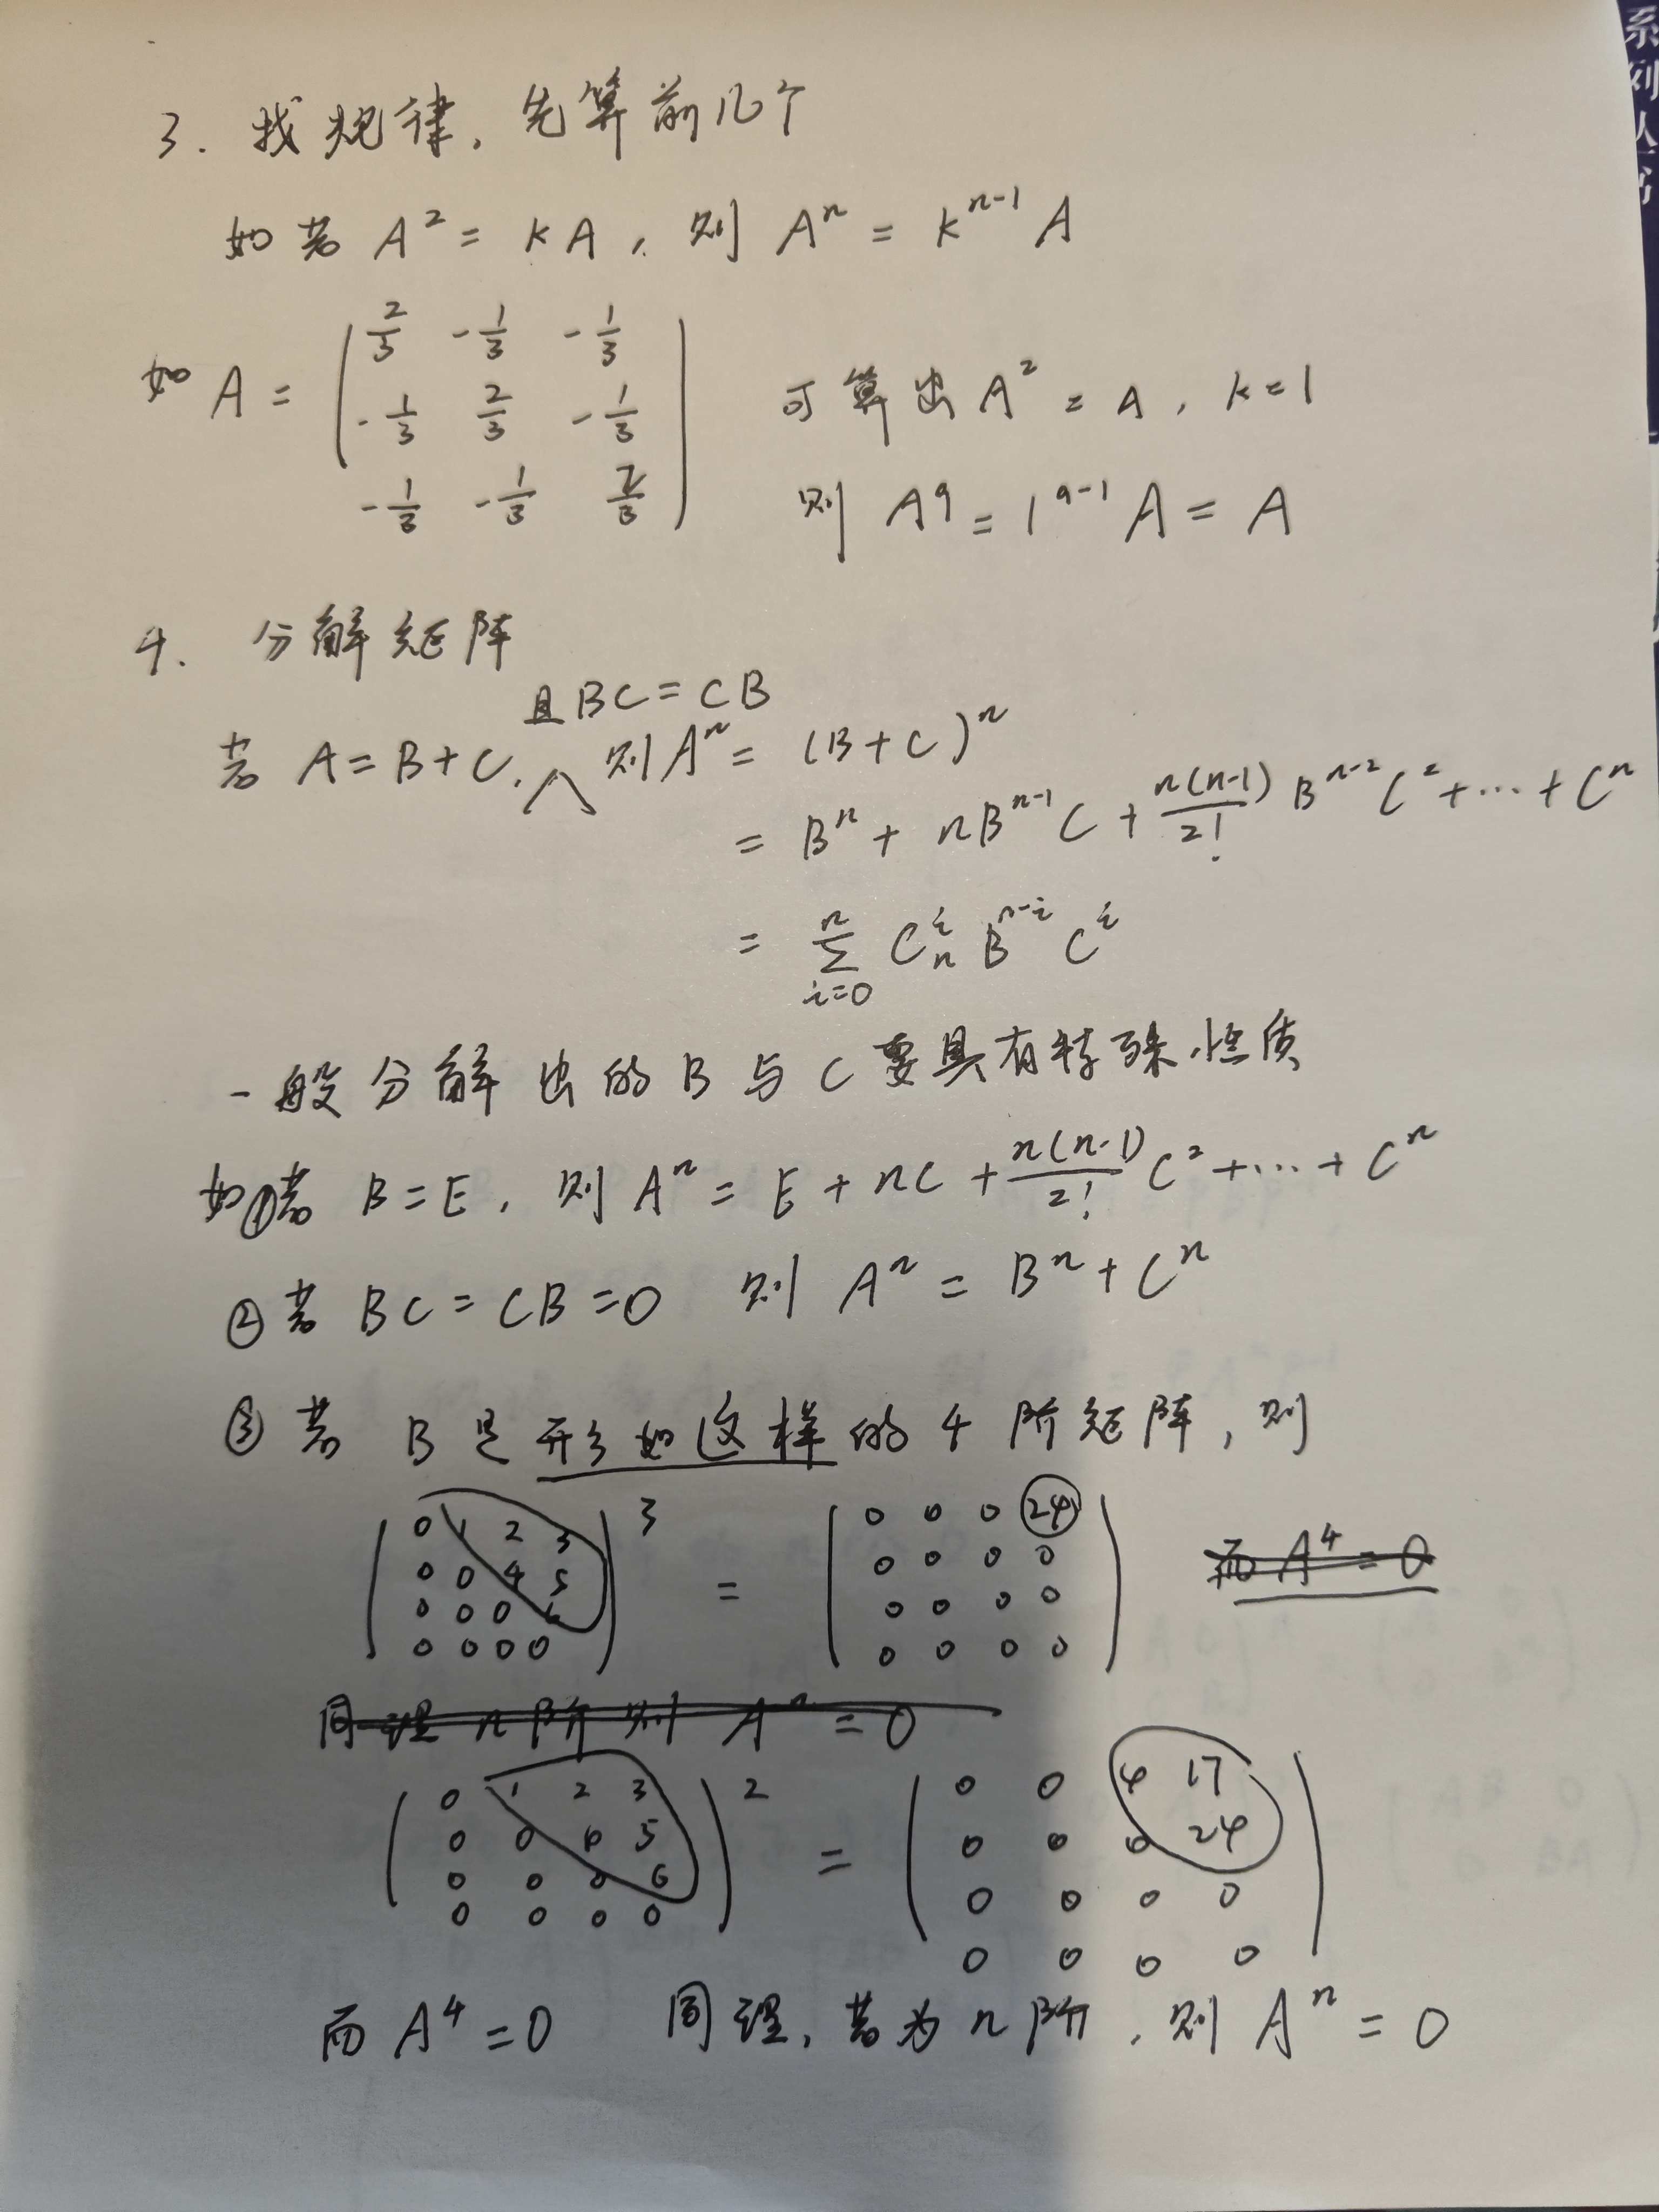 3. 找规律, 先算前几个
如若 A² = kA, 则 Aⁿ = kⁿ⁻¹ A
如 A = ( 2/3 -1/3 -1/3
-1/3 2/3 -1/3
-1/3 -1/3 2/3 )
可算出 A² = A, k=1
则 A⁹ = 1⁹⁻¹ A = A
4. 分解矩阵
若 A = B+C, 且 BC = CB 则 Aⁿ = (B+C)ⁿ
= Bⁿ + nBⁿ⁻¹C + n(n-1)/2! Bⁿ⁻²C² + ⋯ + Cⁿ
= Σ_{i=0}^{n} C_n^i B^{n-i} C^i
一般分解出的 B 与 C 要具有特殊性质
如①若 B = E, 则 Aⁿ = E + nC + n(n-1)/2! C² + ⋯ + Cⁿ
② 若 BC = CB = 0 则 Aⁿ = Bⁿ + Cⁿ
③ 若 B 是形如这样的 4 阶矩阵, 则
( 0 1 2 3
0 0 4 5
0 0 0 6
0 0 0 0 )³ =
( 0 0 0 24
0 0 0 0
0 0 0 0
0 0 0 0 )
而 A⁴ = 0
同理 n 阶则 Aⁿ = 0
( 0 1 2 3
0 0 4 5
0 0 0 6
0 0 0 0 )² =
( 0 0 4 17
0 0 0 24
0 0 0 0
0 0 0 0 )
而 A⁴ = 0 同理, 若为 n 阶, 则 Aⁿ = 0
系列丛书